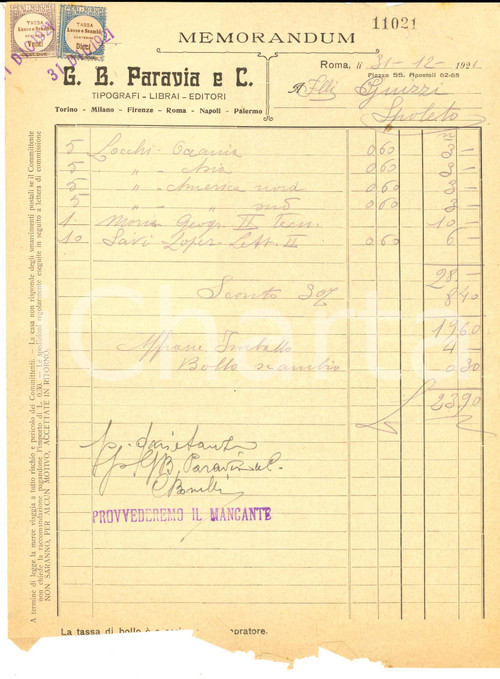 11021
MEMORANDUM
TASSA
Lusso e Scambi
Venti
TASSA
Lusso e Scambi
Dieci
31 DIC 921
Roma, li 31-12-1921
Piazza SS. Apostoli 62-65
G. B. Paravia e C.
TIPOGRAFI - LIBRAI - EDITORI
Torino - Milano - Firenze - Roma - Napoli - Palermo
A Flli Guizzi
Spoleto
5 Locchi - Oceania 0,60 3 -
5 " - Asia 0,60 3 -
5 " - America nord 0,60 3 -
5 " " sud 0,60 3 -
1 Mona Geogr. II Tecn. 10 -
10 Savi Lopez Lett. II 0,60 6
28 -
Sconto 30% 8 40
19 60
Affranc Imballo 4 -
Bollo scambio 0 30
23 90
p. G.B. Paravia e C.
PROVVEDEREMO IL MANCANTE
A termine di legge la merce viaggia a tutto rischio e pericolo dei Committenti. — La casa non risponde degli smarrimenti postali se il Committente
non chiede la raccomandazione pagandone l'importo di L. 0,30. — Le spedizioni regolarmente eseguite in seguito a lettera di commissione
NON SARANNO, PER ALCUN MOTIVO, ACCETTATE IN RITORNO.
La tassa di bollo è a pratore.
iCharta